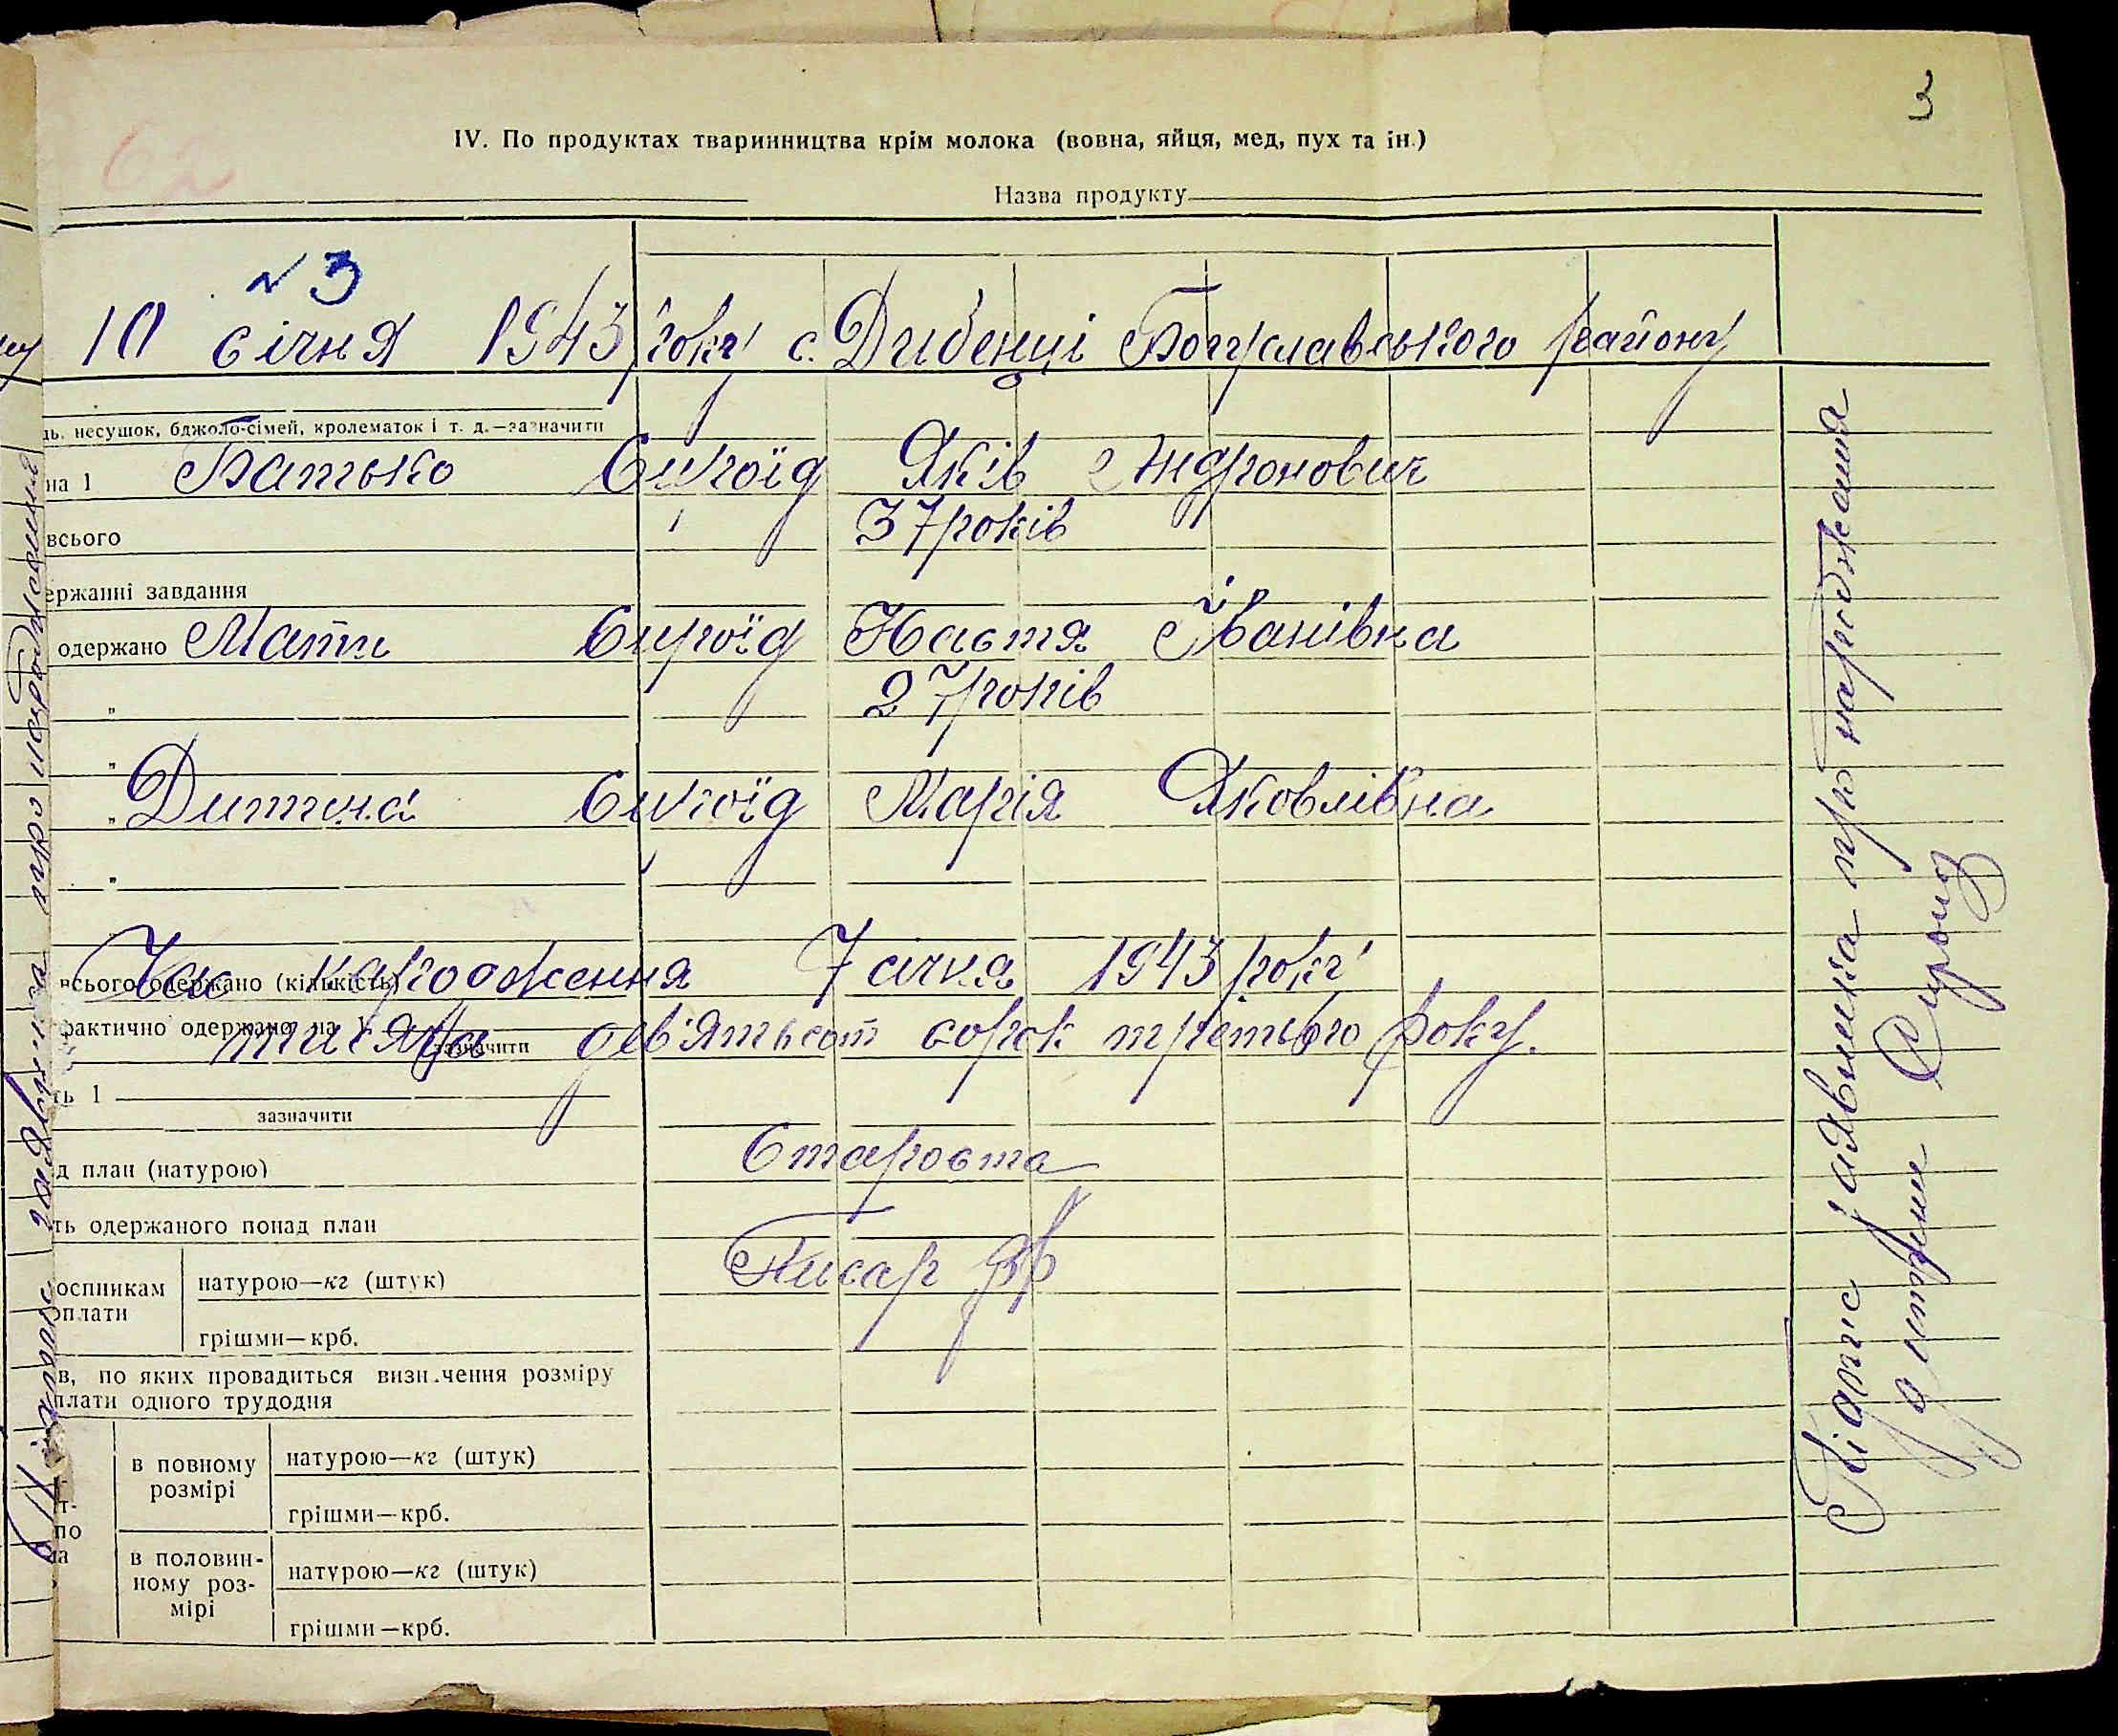 3
62
IV. По продуктах тваринництва крім молока (вовна, яйця, мед, пух та ін.)
Назва продукту
№ 3
10 січня 1943 року с. Дибенці Богуславського району
нь, несушок, бджоло-сімей, кролематок і т. д.—зазначити
на 1 Батько Сироїд Яків Андронович
всього 37 років
ержанні завдання
одержано Мати Сироїд Настя Іванівна
" 27 років
"
" Дитина Сироїд Марія Яковлівна
"
Час народження 7 січня 1943 року
всього одержано (кількість)
тисяча дев'ятьсот сорок третього року.
фактично одержано на 1
зазначити
ть 1
зазначити
Староста
д план (натурою)
ть одержаного понад план
Писар
оспникам оплати
натурою—кг (штук)
грішми—крб.
в, по яких провадиться визн.чення розміру
плати одного трудодня
т-
по
на
в повному
розмірі
натурою—кг (штук)
грішми—крб.
в половин-
ному роз-
мірі
натурою—кг (штук)
грішми—крб.
Підпис заявника про народження
дитини Сироїд
Підпис заявника про народження